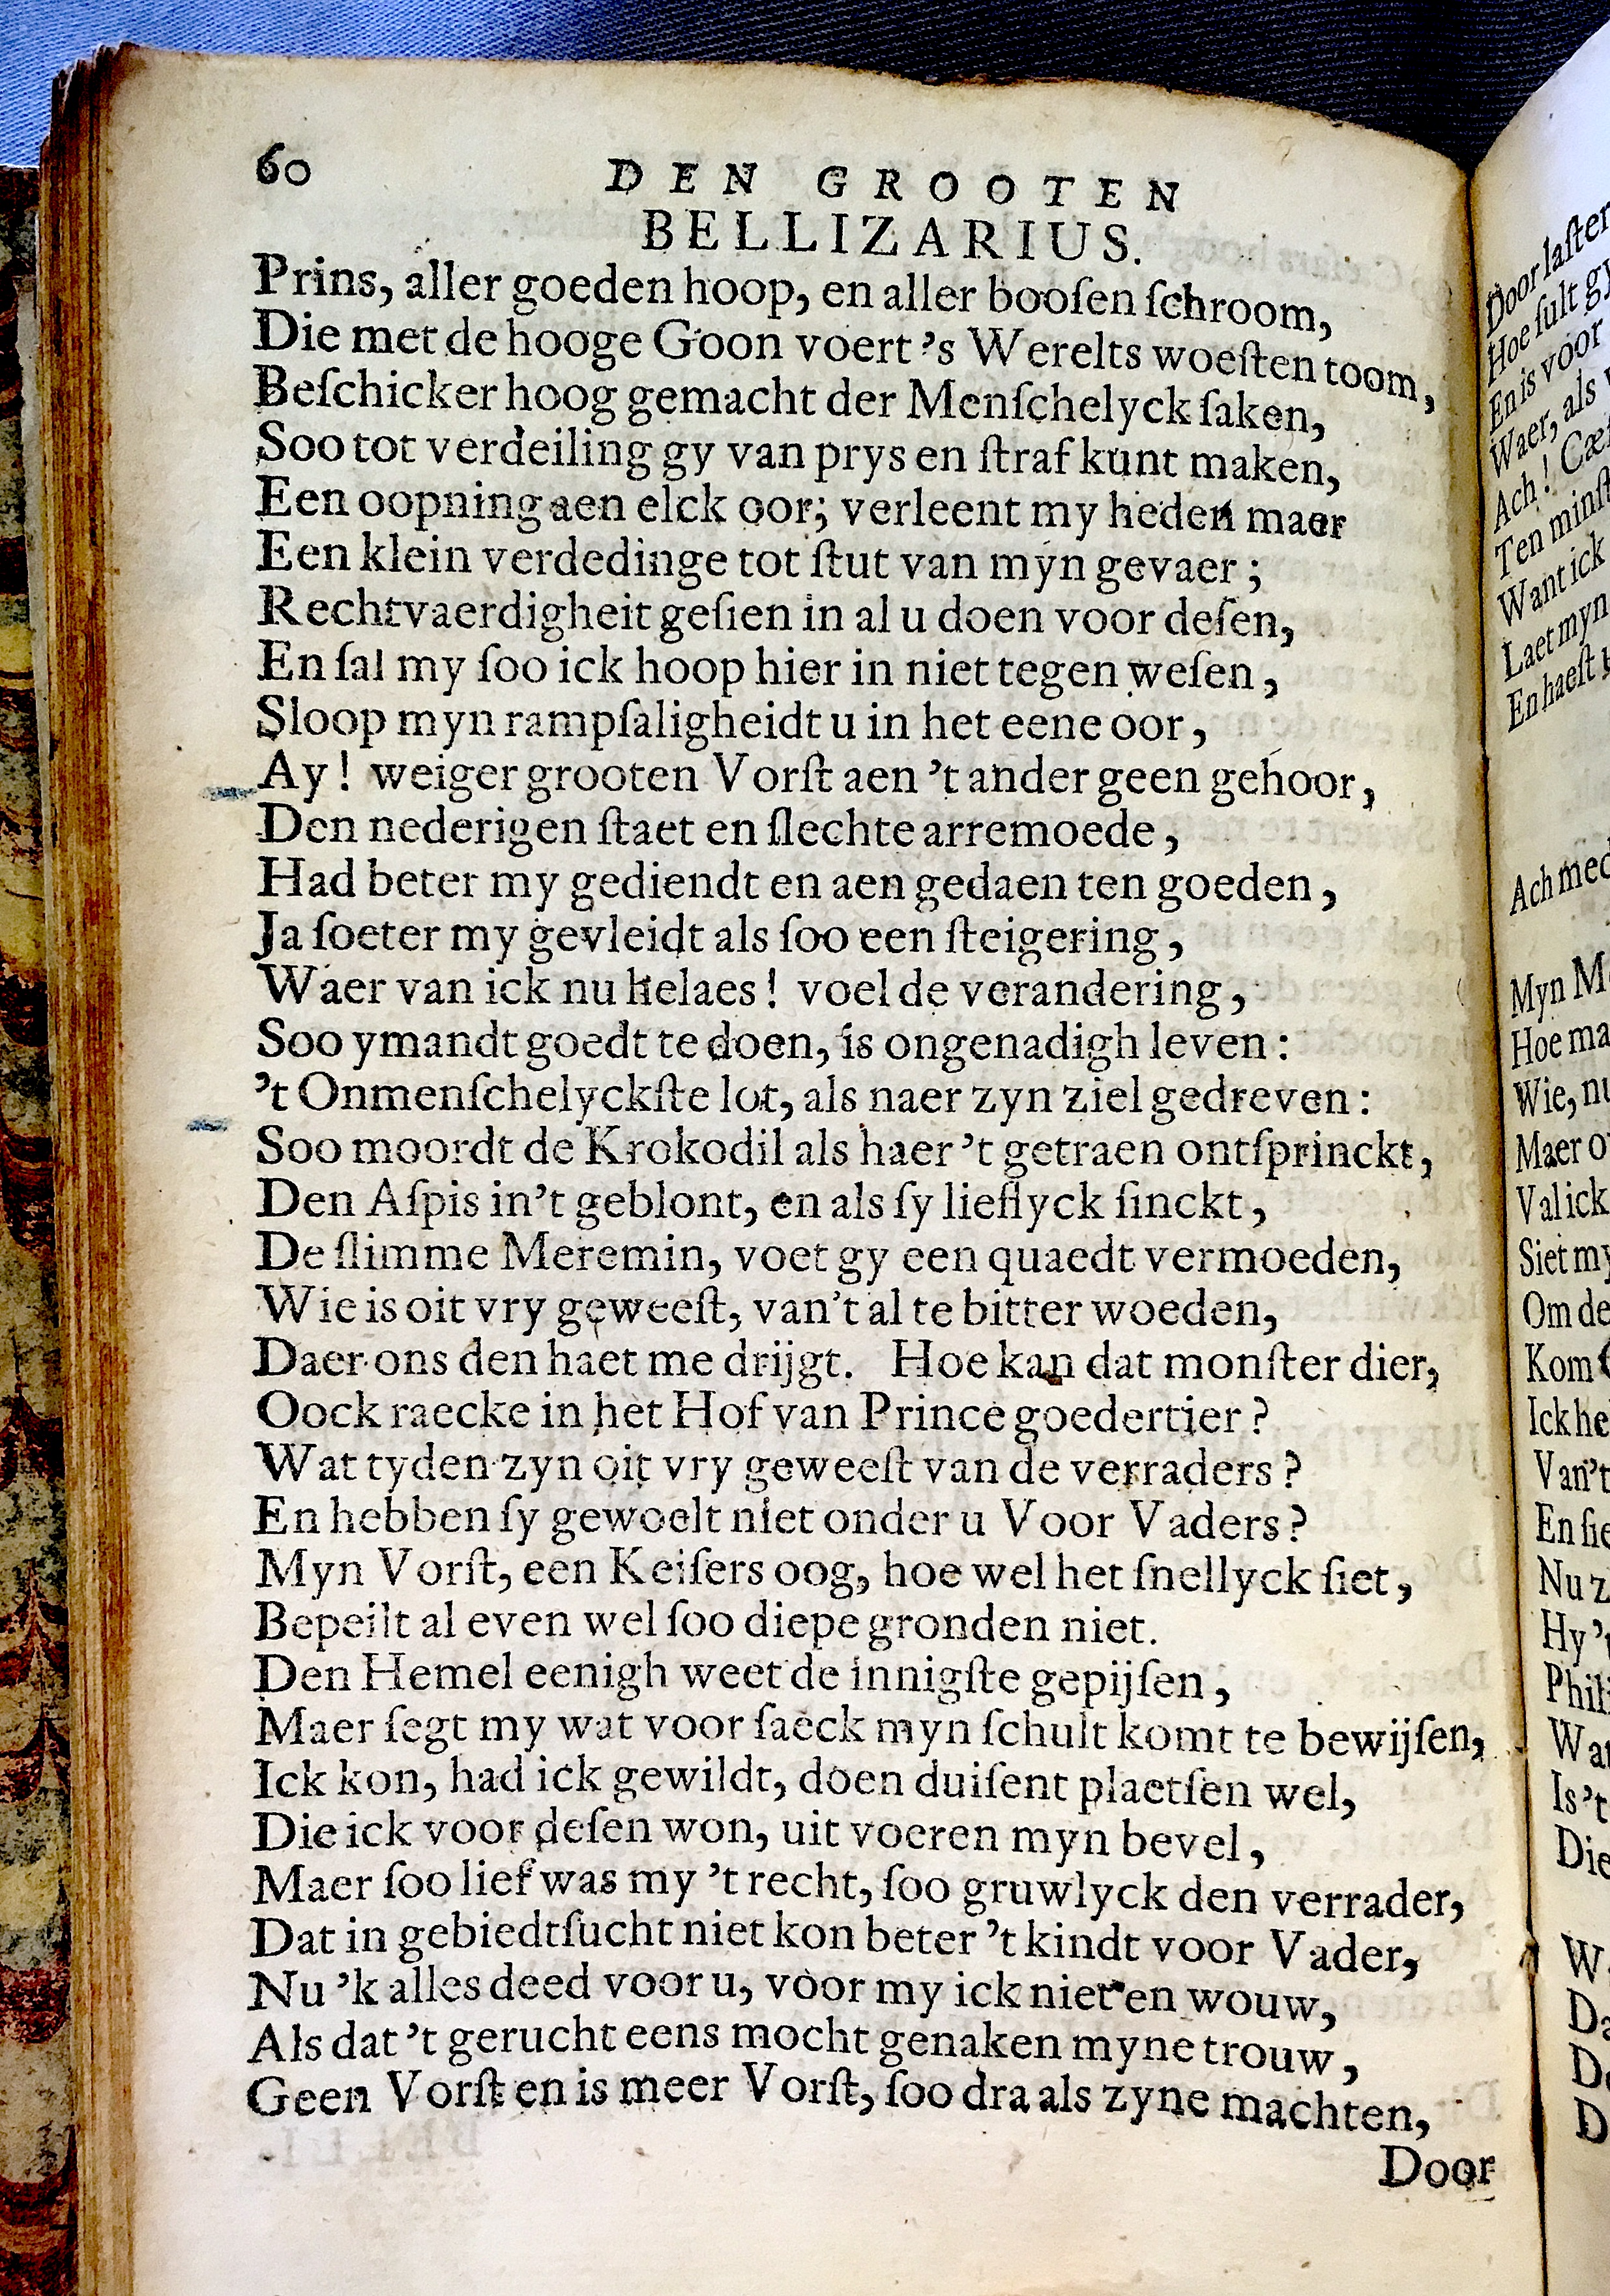 60 DEN GROOTEN
BELLIZARIUS.
Prins, aller goeden hoop, en aller booſen ſchroom,
Die met de hooge Goon voert 's Werelts woeſten toom,
Beſchicker hoog gemacht der Menſchelyck ſaken,
Soo tot verdeiling gy van prys en ſtraf kunt maken,
Een oopning aen elck oor; verleent my heden maer
Een klein verdedinge tot ſtut van myn gevaer;
Rechtvaerdigheit geſien in al u doen voor deſen,
En ſal my ſoo ick hoop hier in niet tegen weſen,
Sloop myn rampſaligheidt u in het eene oor,
Ay! weiger grooten Vorſt aen 't ander geen gehoor,
Den nederigen ſtaet en ſlechte arremoede,
Had beter my gediendt en aen gedaen ten goeden,
Ja ſoeter my gevleidt als ſoo een ſteigering,
Waer van ick nu helaes! voel de verandering,
Soo ymandt goedt te doen, is ongenadigh leven:
't Onmenſchelyckſte lot, als naer zyn ziel gedreven:
Soo moordt de Krokodil als haer 't getraen ontſprinckt,
Den Aſpis in't geblont, en als ſy lieflyck ſinckt,
De ſlimme Meremin, voet gy een quaedt vermoeden,
Wie is oit vry geweeſt, van't al te bitter woeden,
Daer ons den haet me drijgt. Hoe kan dat monſter dier,
Oock raecke in het Hof van Prince goedertier?
Wat tyden zyn oit vry geweeſt van de verraders?
En hebben ſy gewoelt niet onder u Voor Vaders?
Myn Vorſt, een Keiſers oog, hoe wel het ſnellyck ſiet,
Bepeilt al even wel ſoo diepe gronden niet.
Den Hemel eenigh weet de innigſte gepijſen,
Maer ſegt my wat voor ſaeck myn ſchult komt te bewijſen,
Ick kon, had ick gewildt, doen duiſent plaetſen wel,
Die ick voor deſen won, uit voeren myn bevel,
Maer ſoo lief was my 't recht, ſoo gruwlyck den verrader,
Dat in gebiedtſucht niet kon beter 't kindt voor Vader,
Nu 'k alles deed voor u, voor my ick niet en wouw,
Als dat 't gerucht eens mocht genaken myne trouw,
Geen Vorſt en is meer Vorſt, ſoo dra als zyne machten,
Door
Door laſter
Hoe ſult gy
En is voor
Waer, als
Ach!
Ten
Want ick
Laet myn
En haeſt
Ach
Myn
Hoe
Wie,
Maer
Val ick
Siet my
Om de
Kom
Ick
Van't
En
Nu
Hy
Is 't
Die